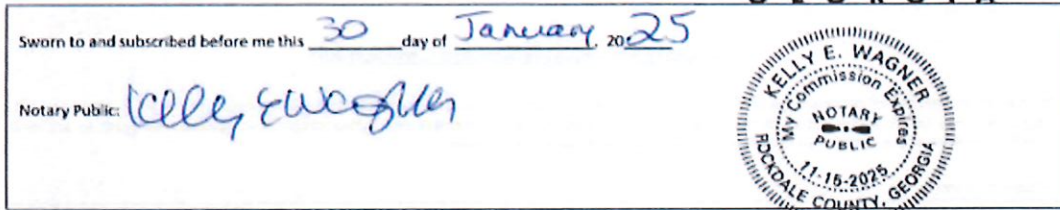 GEORGIA
Sworn to and subscribed before me this 30 day of January, 2025
Notary Public: Kelly E Wagner
KELLY E. WAGNER
My Commission Expires
NOTARY
PUBLIC
11-15-2025
ROCKDALE COUNTY, GEORGIA